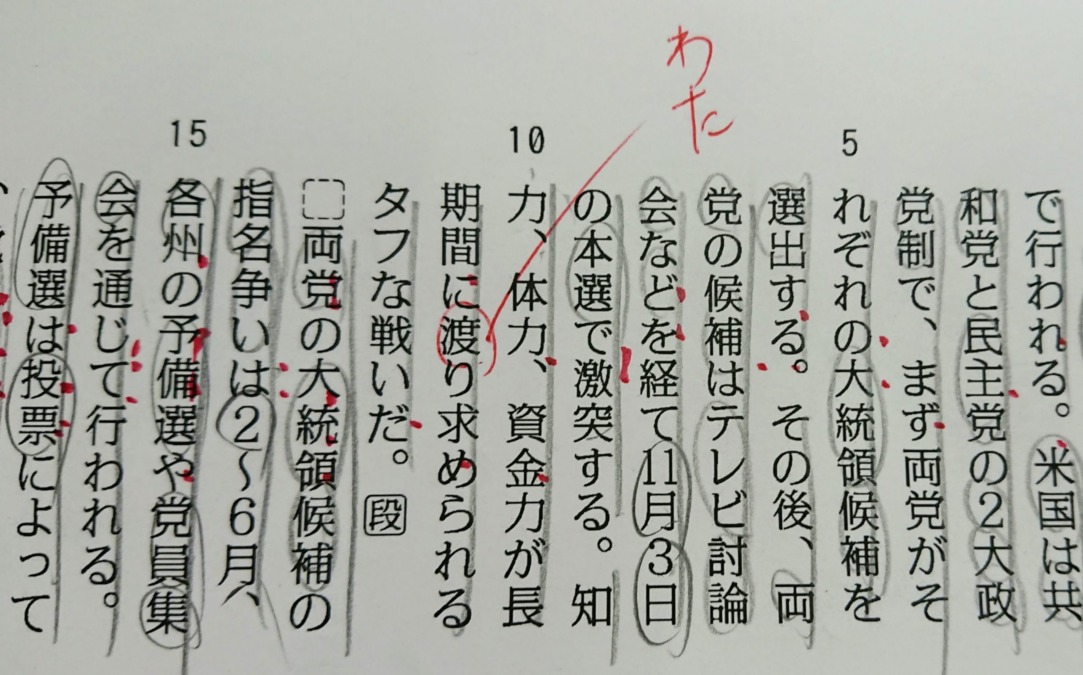 で行われる。米国は共
和党と民主党の2大政
党制で、まず両党がそ
れぞれの大統領候補を
5
選出する。その後、両
党の候補はテレビ討論
会などを経て11月3日
の本選で激突する。知
力、体力、資金力が長
10
期間に渡り求められる
わた
タフな戦いだ。段
両党の大統領候補の
指名争いは2〜6月、
各州の予備選や党員集
15
会を通じて行われる。
予備選は投票によって